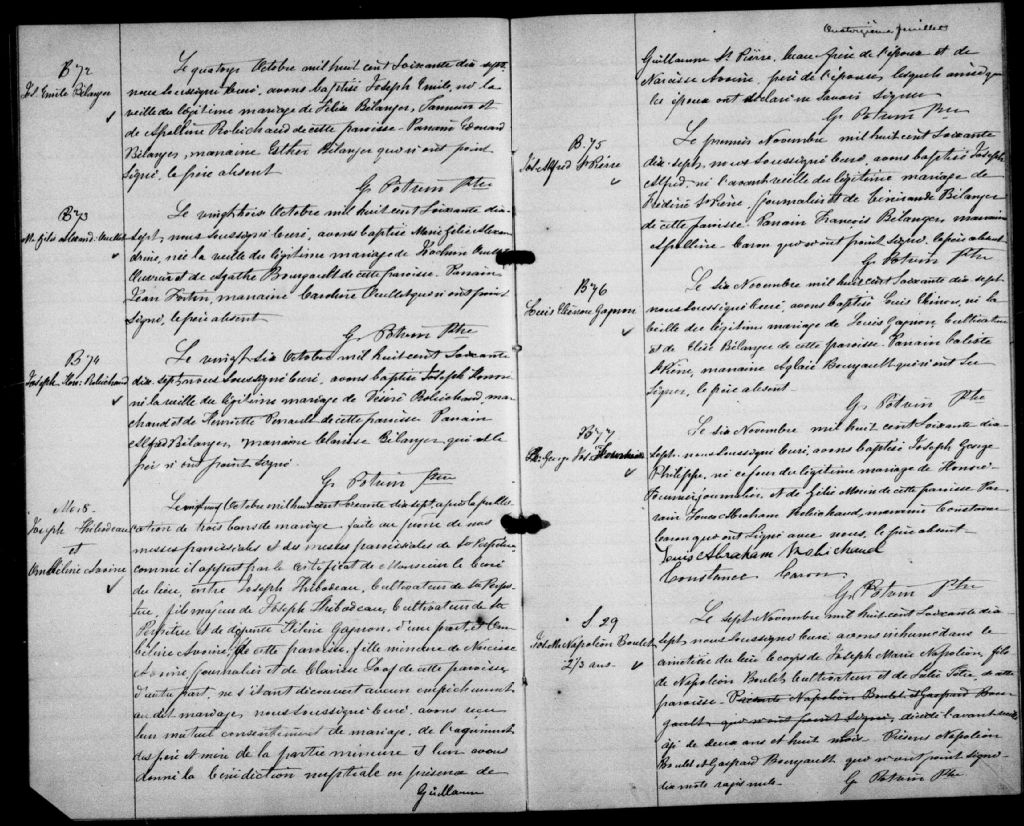 B 72
Jos. Emile Bélanger
Le quatorze Octobre mil huit cent soixante dix-sept
nous soussigné Curé, avons baptisé Joseph Emile, né la
veille du légitime mariage de Bélanger, et
de Apolline Robichaud de cette paroisse. Parrain Edouard
Bélanger, marraine Esther Bélanger qui n'ont point
signé, le père absent
G. Potvin Ptre
B 73
Le vingt Octobre mil huit cent soixante dix-
sept, nous soussigné Curé, avons baptisé Marie
née la veille du légitime mariage de
et de Agathe Bourgault de cette paroisse. Parrain
Jean Fortin, marraine Caroline qui n'ont point
signé, le père absent
G. Potvin Ptre
B 74
Joseph Hon. Robichaud
Le vingt six Octobre mil huit cent soixante
dix-sept, nous soussigné Curé, avons baptisé Joseph Honoré
né la veille du légitime mariage de Désiré Robichaud, mar
chand et de Henriette de cette paroisse. Parrain
Alfred Bélanger, marraine Clarisse Bélanger, qui et le
père n'ont point signé.
G. Potvin Ptre
M. 8.
Joseph Thibodeau
et
Octobre mil huit cent soixante dix sept, après la publi
cation de trois bans de mariage faite au prône de nos
messes paroissiales et des messes paroissiales de Ste Perpétue
comme il appert par le certificat de Monsieur le Curé
du lieu, entre Joseph Thibodeau, Cultivateur de Ste Perpé
tue, fils majeur de Joseph Thibodeau, Cultivateur de Ste
Perpétue et de défunte Gagnon, d'une part, et
de cette paroisse, fille mineure de Narcisse
journalier et de Clarisse de cette paroisse
d'autre part, ne s'étant découvert aucun empêchement
au dit mariage, nous soussigné Curé, avons reçu
leur mutuel consentement de mariage, de l'agrément
des père et mère de la partie mineure et leur avons
donné la bénédiction nuptiale en présence de
Guillaume
Quatorzième feuillet
Guillaume St Pierre, beau frère de l'époux et de
Narcisse père de l'épouse, lesquels ainsi que
les époux ont déclaré ne savoir signer
G. Potvin Ptre
B. 75
Jos Alfred St Pierre
Le premier Novembre mil huit cent soixante
dix-sept, nous soussigné Curé, avons baptisé Joseph
Alfred, né l'avant veille du légitime mariage de
St Pierre journalier et de Bélanger
de cette paroisse. Parrain François Bélanger, marraine
Apolline Caron qui n'ont point signé, le père absent
G. Potvin Ptre
B 76
Louis Gagnon
Le six Novembre mil huit cent soixante dix sept
nous soussigné Curé, avons baptisé Louis né la
veille du légitime mariage de Louis Gagnon, Cultivateur
et de Elise Bélanger de cette paroisse. Parrain Caliste
St Pierre, marraine Aglaé Bourgault qui n'ont su
signer, le père absent
G. Potvin Ptre
B 77
Le six Novembre mil huit cent soixante dix-
sept nous soussigné Curé, avons baptisé Joseph George
Philippe, né ce jour du légitime mariage de Honoré
journalier, et de Morin de cette paroisse Par
rain Louis Abraham Robichaud, marraine Constance
Caron qui ont signé avec nous, le père absent
Louis Abraham Robichaud
Constance Caron
G. Potvin Ptre
S 29
Jos M. Napoléon Boulet
2 2/3 ans
Le sept Novembre mil huit cent soixante dix-
sept, nous soussigné Curé avons inhumé dans le
cimetière du lieu le corps de Joseph Marie Napoléon, fils
de Napoléon Boulet, Cultivateur et de de cette
paroisse. Napoléon Boulet et Gaspard Bour
gault, qui n'ont point signé, décédé l'avant veille
âgé de deux ans et huit mois. Présents Napoléon
Boulet et Gaspard Bourgault qui n'ont point signé
dix mots rayés nuls.
G. Potvin Ptre